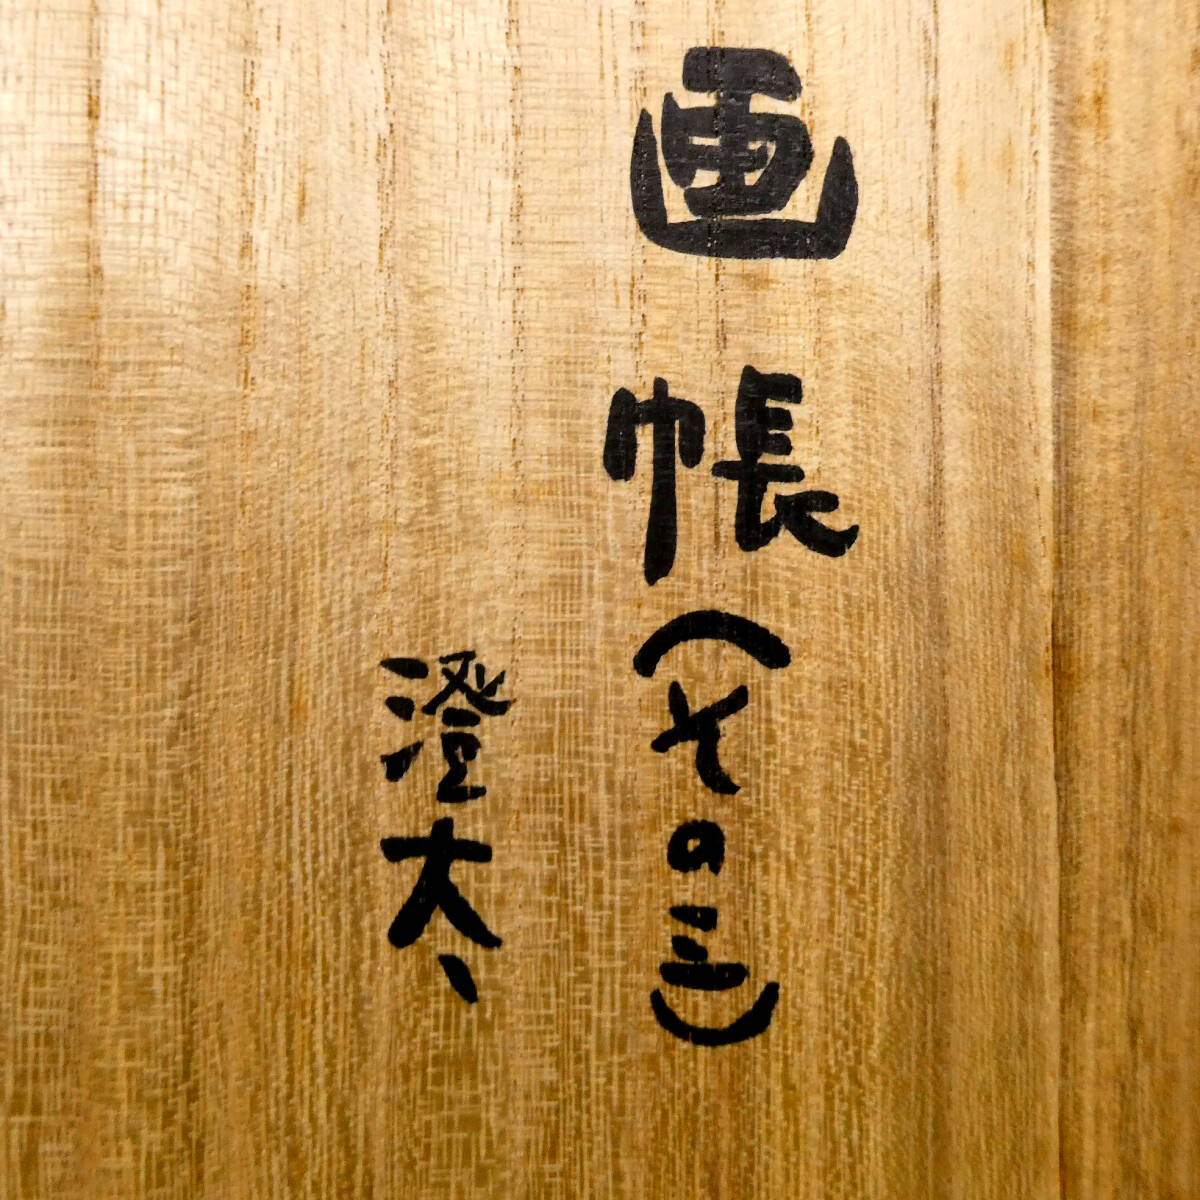 画帳(その三)
澄太、